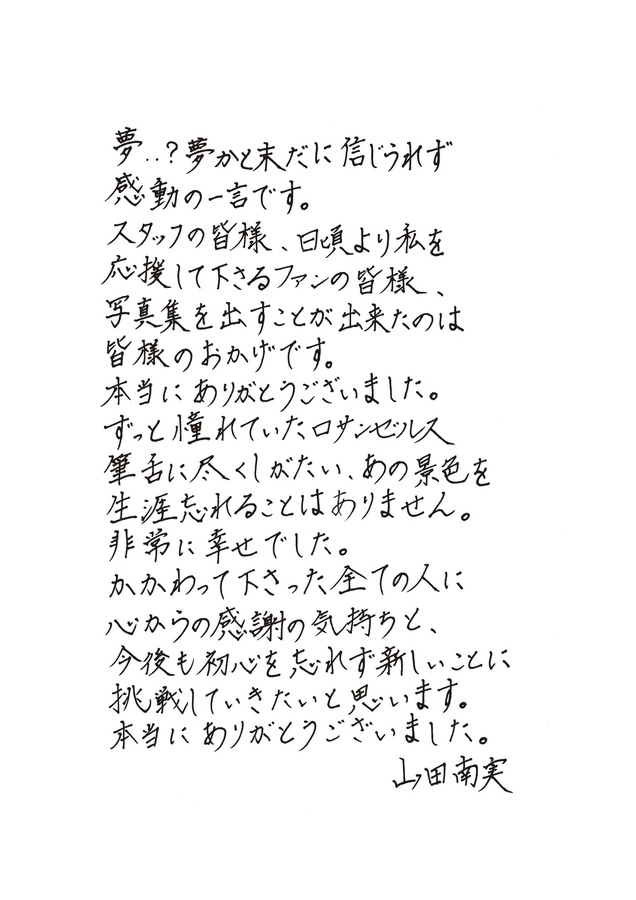 夢..?夢かと未だに信じられず
感動の一言です。
スタッフの皆様、日頃より私を
応援して下さるファンの皆様、
写真集を出すことが出来たのは
皆様のおかげです。
本当にありがとうございました。
ずっと憧れていたロサンゼルス
筆舌に尽くしがたい、あの景色を
生涯忘れることはありません。
非常に幸せでした。
かかわって下さった全ての人に
心からの感謝の気持ちと、
今後も初心を忘れず新しいことに
挑戦していきたいと思います。
本当にありがとうございました。
山田南実